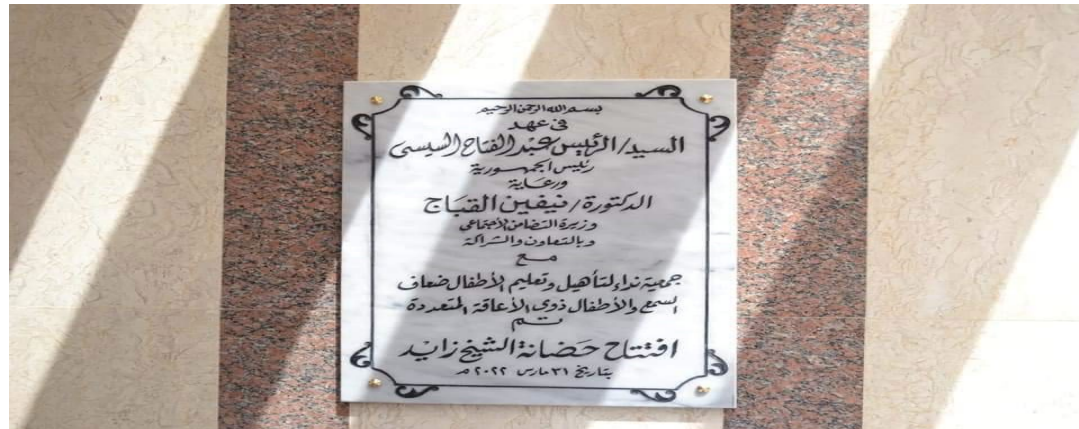 بسم الله الرحمن الرحيم
فى عهد
السيد/الرئيس عبد الفتاح السيسى
رئيس الجمهورية
ورعاية
الدكتورة/نيفين القباج
وزيرة التضامن الأجتماعى
وبالتعاون والشراكة
مع
جمعية نداء لتأهيل وتعليم الأطفال ضعاف
السمع والأطفال ذوى الأعاقة المتعددة
تم
افتتاح حضانة الشيخ زايد
بتاريخ ٣١ مارس ٢٠٢٢ مـ